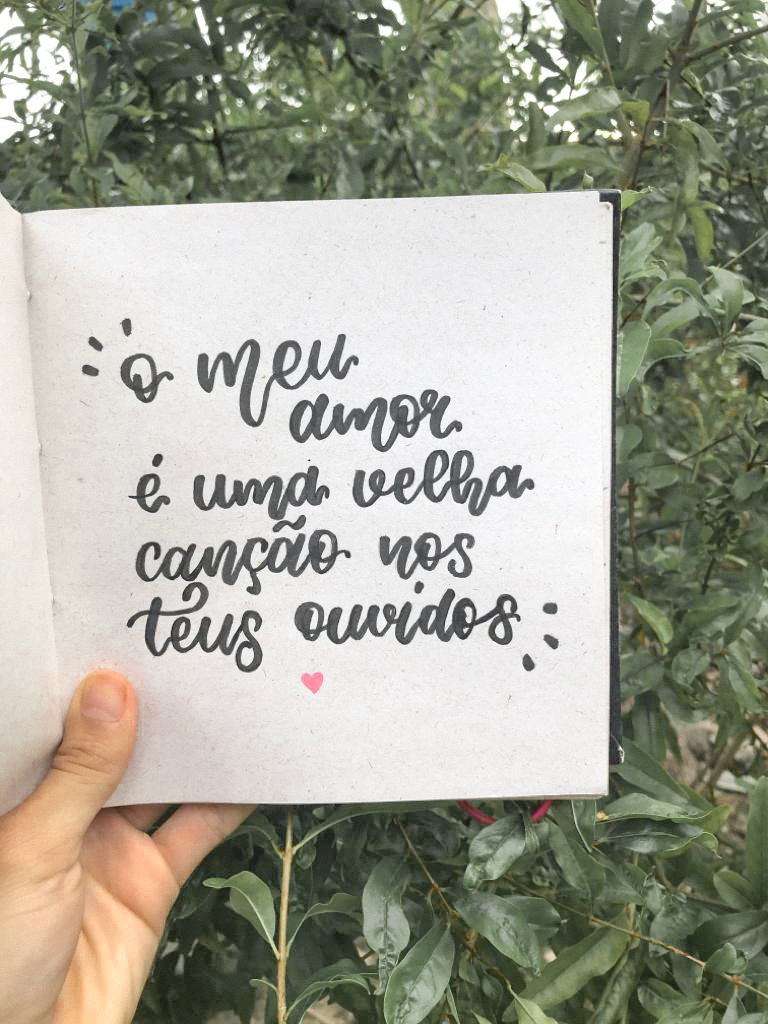 o meu
amor
é uma velha
canção nos
teus ouvidos